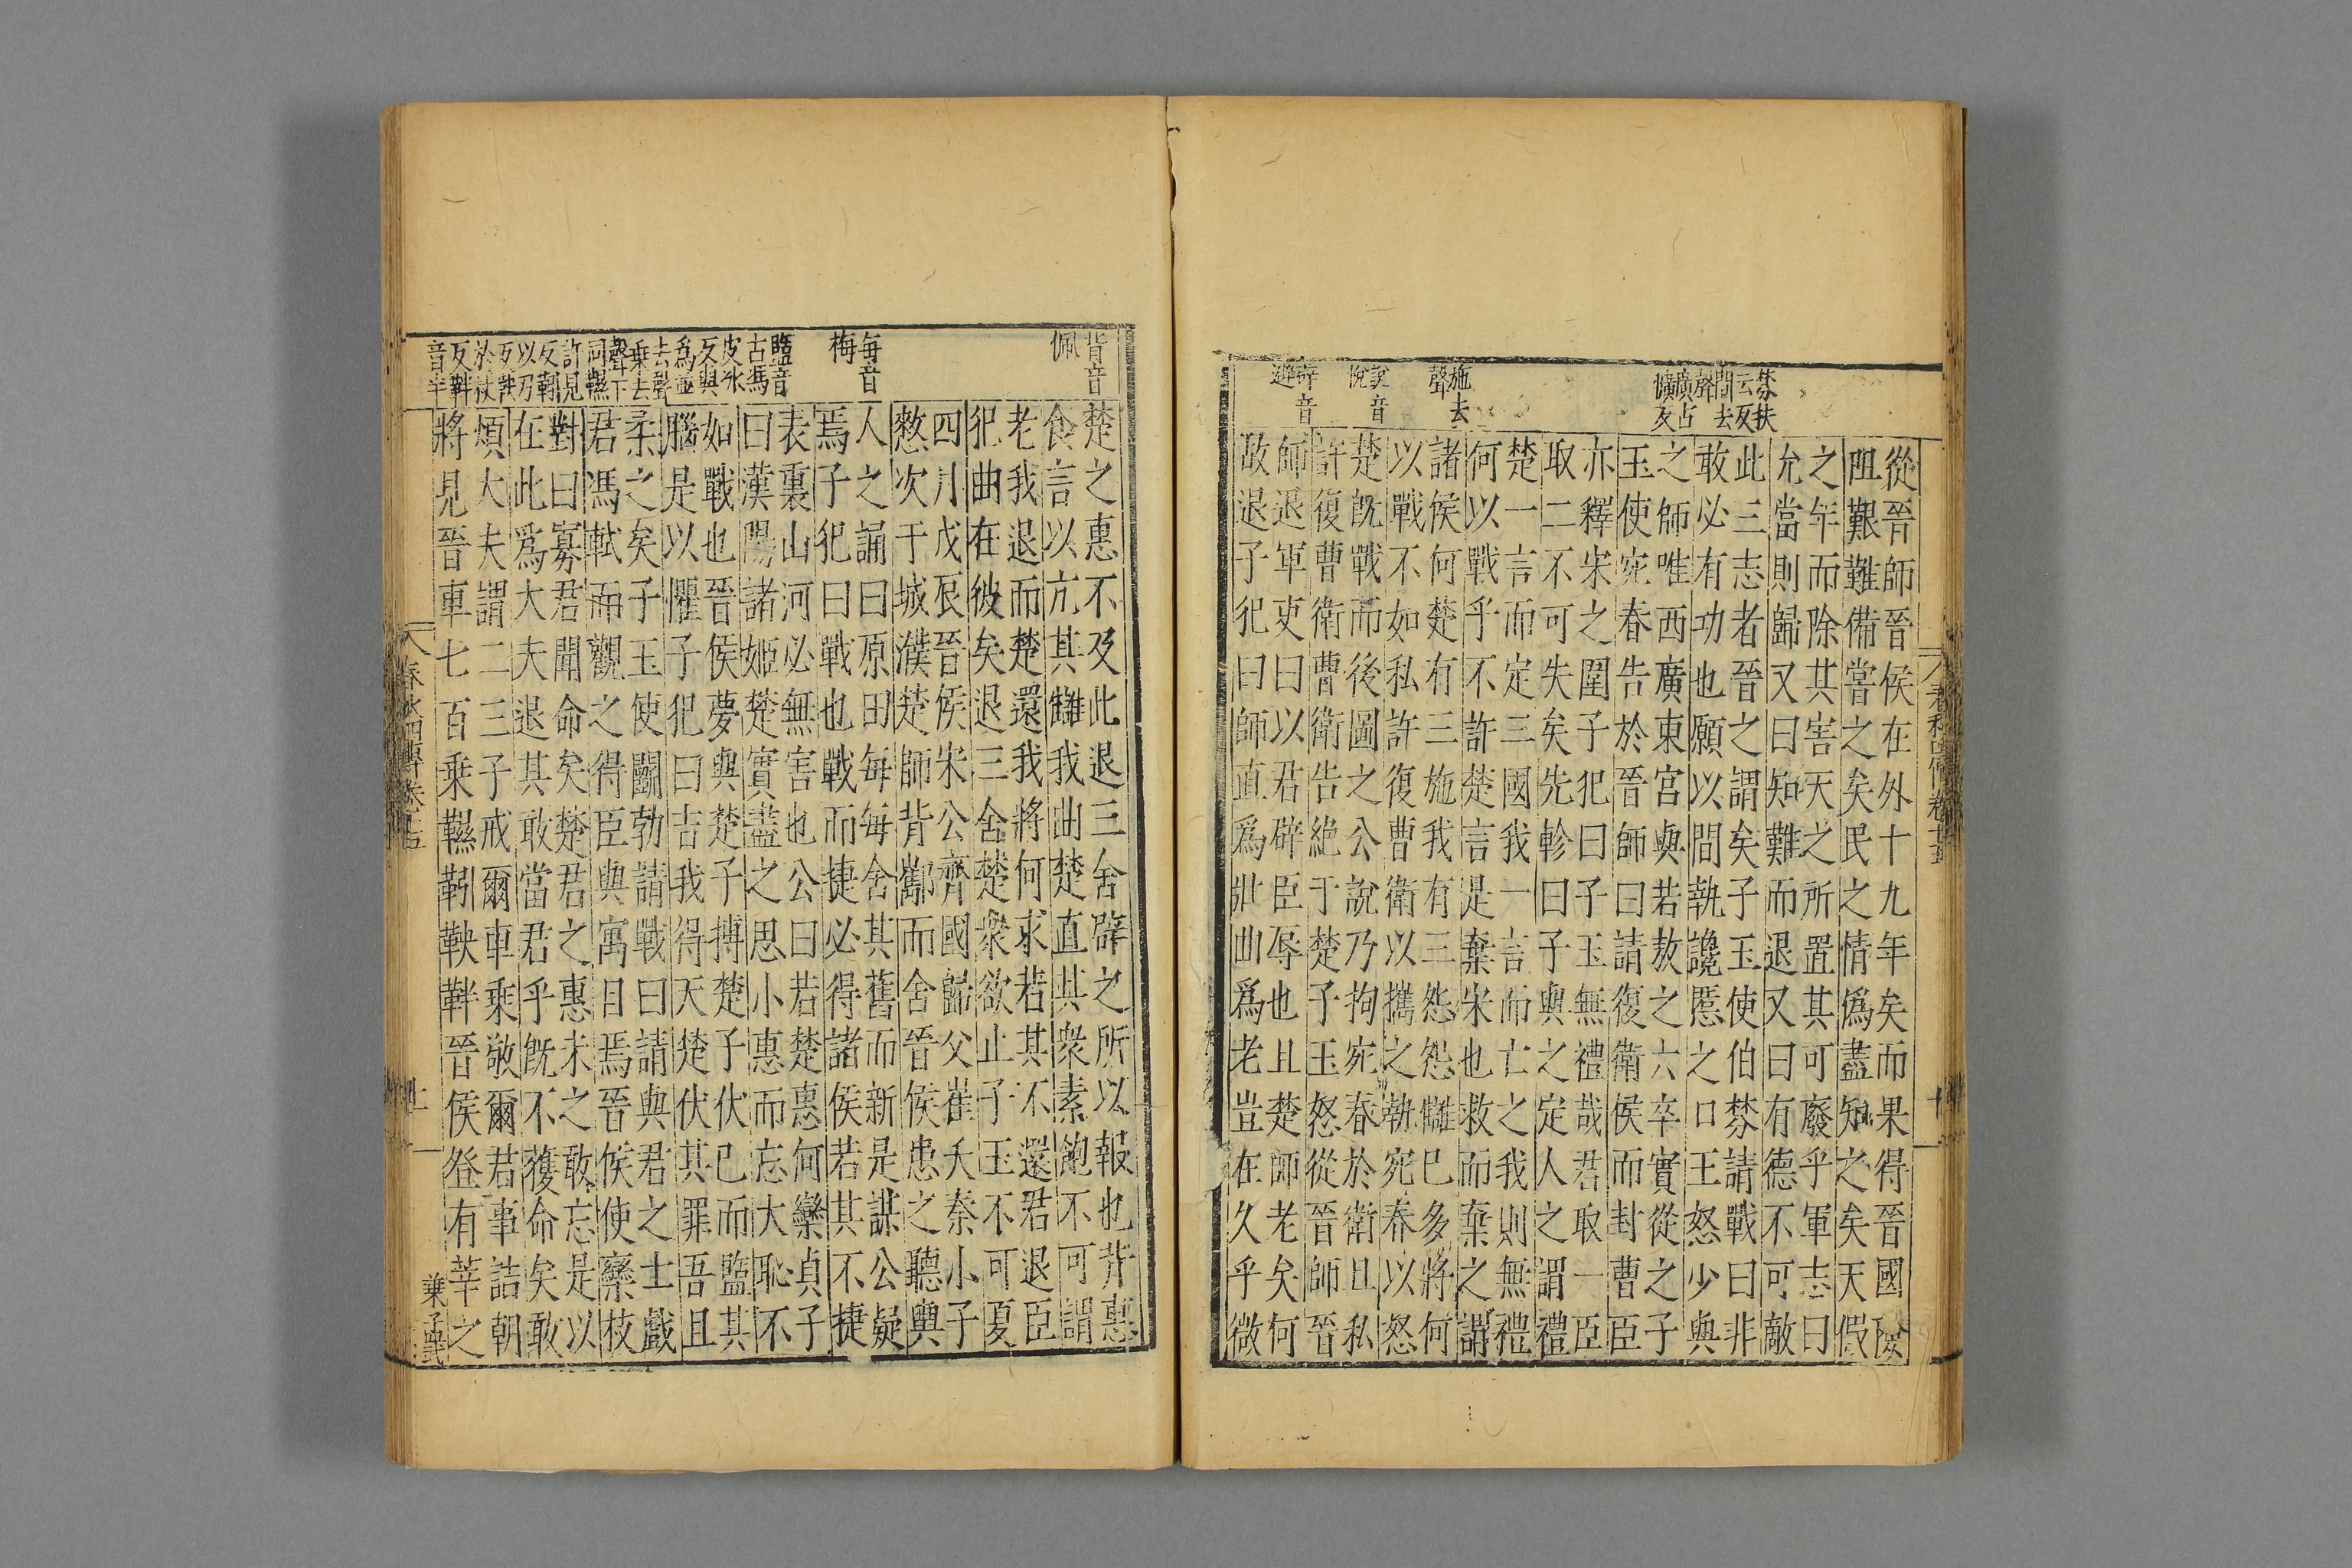 棼扶
云反
間去
聲
廣古
曠反
施去
聲
說音
悅
辟音
避
從晉師晉侯在外十九年矣而果得晉國險
阻艱難備嘗之矣民之情僞盡知之矣天假
之年而除其害天之所置其可廢乎軍志曰
允當則歸又曰知難而退又曰有德不可敵
此三志者晉之謂矣子玉使伯棼請戰曰非
敢必有功也願以間執讒慝之口王怒少與
之師唯西廣東宮與若敖之六卒實從之子
玉使宛春告於晉師曰請復衛侯而封曹臣
亦釋宋之圍子犯曰子玉無禮哉君取一臣
取二不可失矣先軫曰子與之定人之謂禮
楚一言而定三國我一言而亡之我則無禮
何以戰乎不許楚言是棄宋也救而棄之謂
諸侯何楚有三施我有三怨怨讎已多將何
以戰不如私許復曹衛以攜之執宛春以怒
楚既戰而後圖之公說乃拘宛春於衛且私
許復曹衛曹衛告絕于楚子玉怒從晉師晉
師退軍吏曰以君辟臣辱也且楚師老矣何
故退子犯曰師直爲壯曲爲老豈在久乎微
背音
佩
每音
梅
盬音
古馮
皮冰
反與
爲並
去聲
乘去
聲下
同韅
許見
反靷
以刃
反鞅
於杖
反靽
音半
楚之惠不及此退三舍辟之所以報也背惠
食言以亢其讎我曲楚直其衆素飽不可謂
老我退而楚還我將何求若其不還君退臣
犯曲在彼矣退三舍楚衆欲止子玉不可夏
四月戊辰晉侯宋公齊國歸父崔夭秦小子
憖次于城濮楚師背酅而舍晉侯患之聽輿
人之誦曰原田每每舍其舊而新是謀公疑
焉子犯曰戰也戰而捷必得諸侯若其不捷
表裏山河必無害也公曰若楚惠何欒貞子
曰漢陽諸姬楚實盡之思小惠而忘大恥不
如戰也晉侯夢與楚子搏楚子伏已而盬其
腦是以懼子犯曰吉我得天楚伏其罪吾且
柔之矣子玉使鬭勃請戰曰請與君之士戲
君馮軾而觀之得臣與寓目焉晉侯使欒枝
對曰寡君聞命矣楚君之惠未之敢忘是以
在此爲大夫退其敢當君乎既不獲命矣敢
煩大夫謂二三子戒爾車乘敬爾君事詰朝
將見晉車七百乘韅靷鞅靽晉侯登有莘之